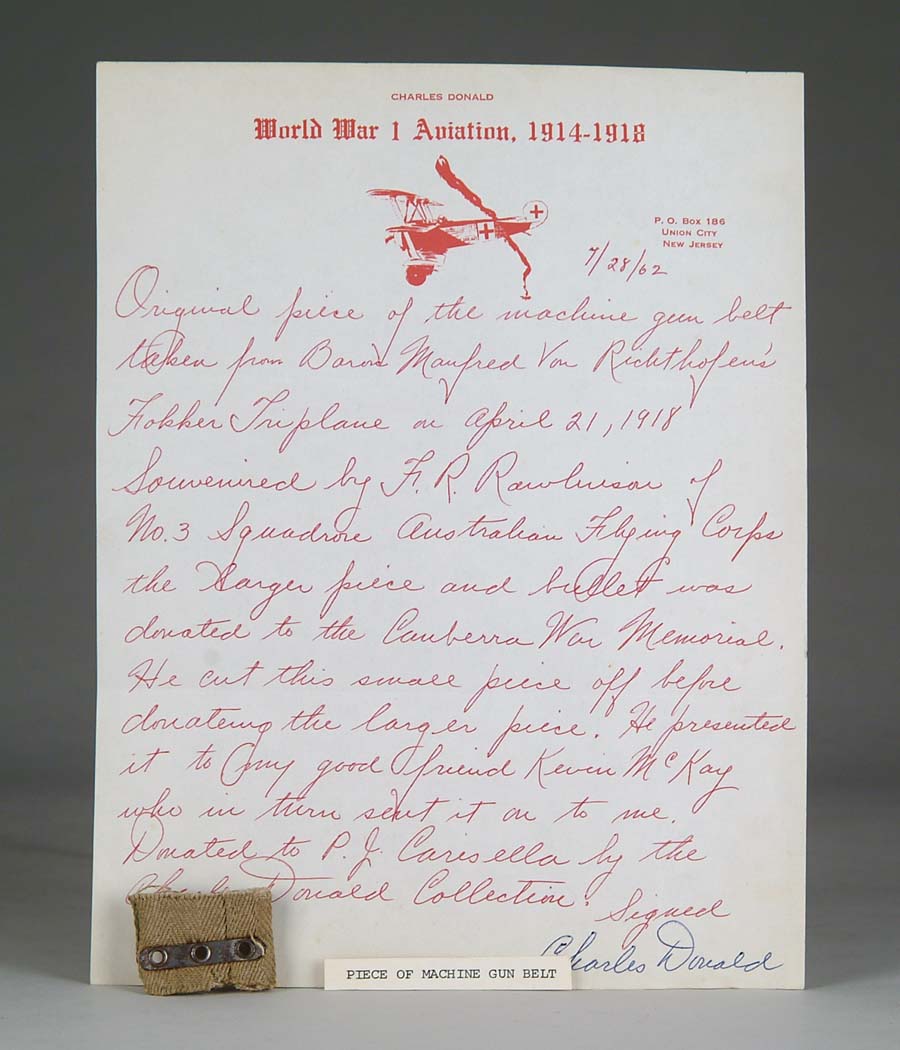 CHARLES DONALD
World War 1 Aviation, 1914-1918
P. O. Box 186
Union City
New Jersey
7/28/62
Original piece of the machine gun belt
taken from Baron Manfred Von Richthofen's
Fokker Triplane on April 21, 1918
Souvenired by F. R. Rawlinson of
No. 3 Squadron Australian Flying Corps
the larger piece and bullet was
donated to the Canberra War Memorial.
He cut this small piece off before
donateing the larger piece. He presented
it to my good friend Kevin McKay
who in turn sent it on to me.
Donated to P. J. Carisella by the
Donald Collection.
Signed
Charles Donald
PIECE OF MACHINE GUN BELT